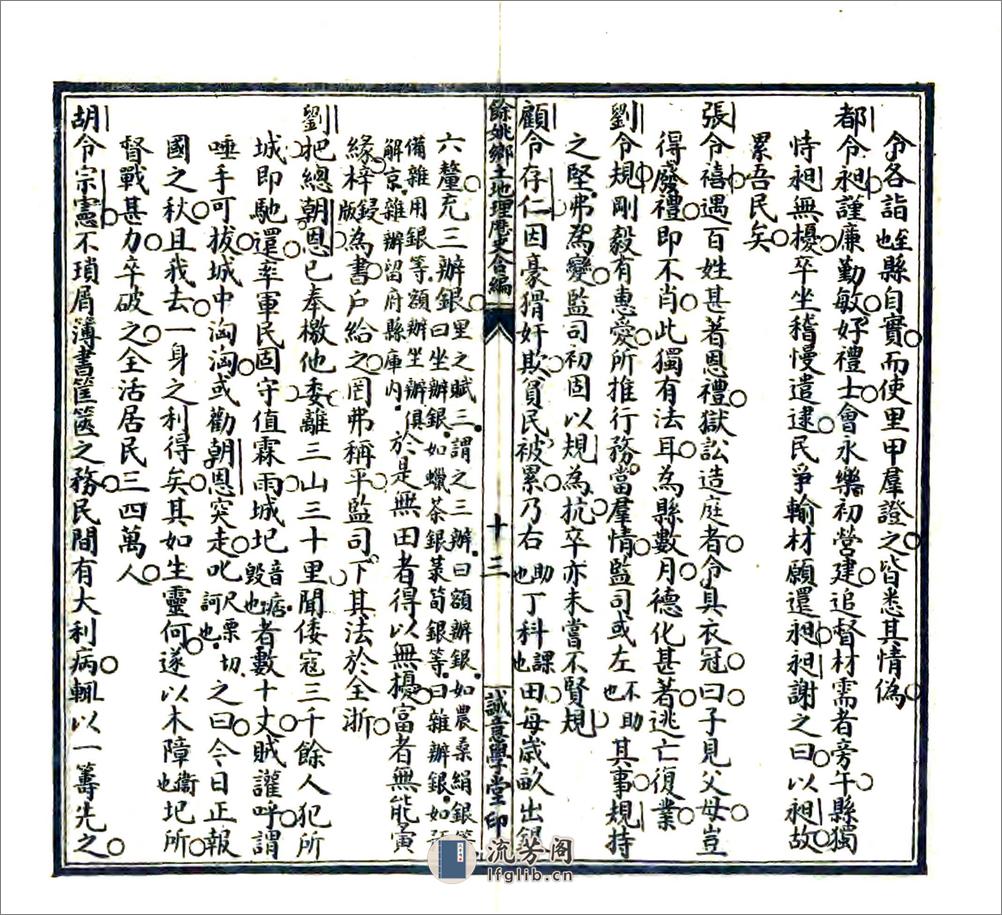 令各詣至也縣自實而使里甲羣證之皆悉其情偽
都令昶謹廉勤敏好禮士會永樂初營建追督材需者旁午縣獨
恃昶無擾卒坐稽慢遣逮民爭輸材願還昶昶謝之曰以昶故
累吾民矣
張令禧遇百姓甚著恩禮獄訟造庭者令具衣冠曰子見父母豈
得廢禮即不肖此獨有法耳為縣數月德化甚著逃亡復業
劉令規剛毅有惠愛所推行務當羣情監司或左不助也其事規持
之堅弗為變監司初固以規為抗卒亦未嘗不賢規
顧令存仁因豪猾奸欺貧民被累乃右助也丁科課也田每歲畝出銀
餘姚鄉土地理歷史合編
十三
誠意學堂印
六釐充三辦銀里之賦三謂之三辦曰額辦銀如農桑絹銀等
曰坐辦銀如蠟茶銀菉筍銀等曰雜辦銀如預
備雜用銀等額辦坐辦俱
解京雜辦留府縣庫內於是無田者得以無擾富者無能寅
緣梓鋟版為書戶給之罔弗稱平監司下其法於全浙
劉把總朝恩已奉檄他委離三山三十里聞倭寇三千餘人犯所
城即馳還率軍民固守值霖雨城圮音痞毀也者數十丈賊讙呼謂
唾手可拔城中洶洶或勸朝恩突走叱尺栗切訶也之曰今日正報
國之秋且我去一身之利得矣其如生靈何遂以木障衞也圮所
督戰甚力卒破之全活居民三四萬人
胡令宗憲不瑣屑薄書筐篋之務民間有大利病輒以一籌先之
流芳阁
lfglib.cn